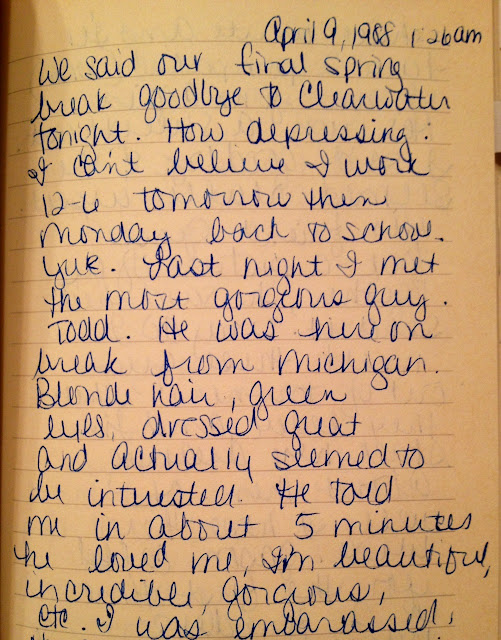 April 9, 1988 1:26am
We said our final spring
break goodbye to Clearwater
tonight. How depressing.
I can't believe I work
12-6 tomorrow then
Monday back to school.
Yuk. Last night I met
the most gorgeous guy.
Todd. He was here on
break from Michigan.
Blonde hair, green
eyes, dressed great
and actually seemed to
be interested. He told
me in about 5 minutes
he loved me, I'm beautiful,
incredible, gorgious,
etc. I was embarassed.